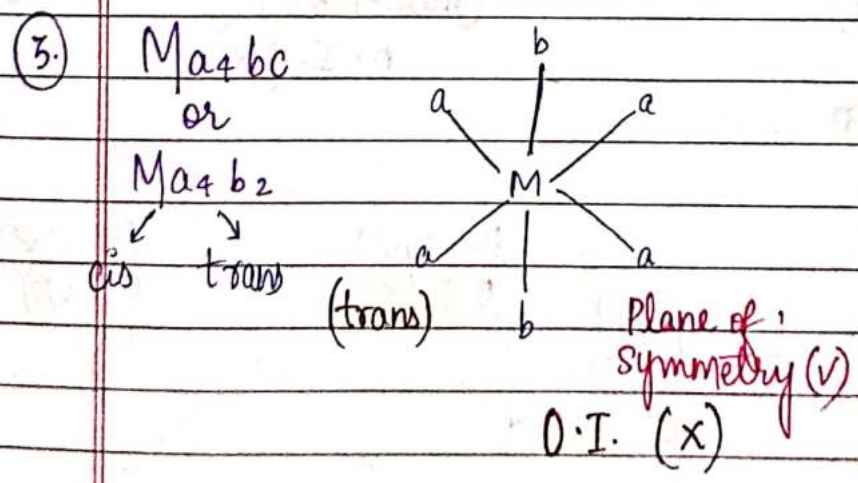 3. Ma4bc
or
Ma4b2
↙ ↘
cis trans
b
a a
M
a a
(trans) b
Plane of
symmetry (✓)
O.I. (×)